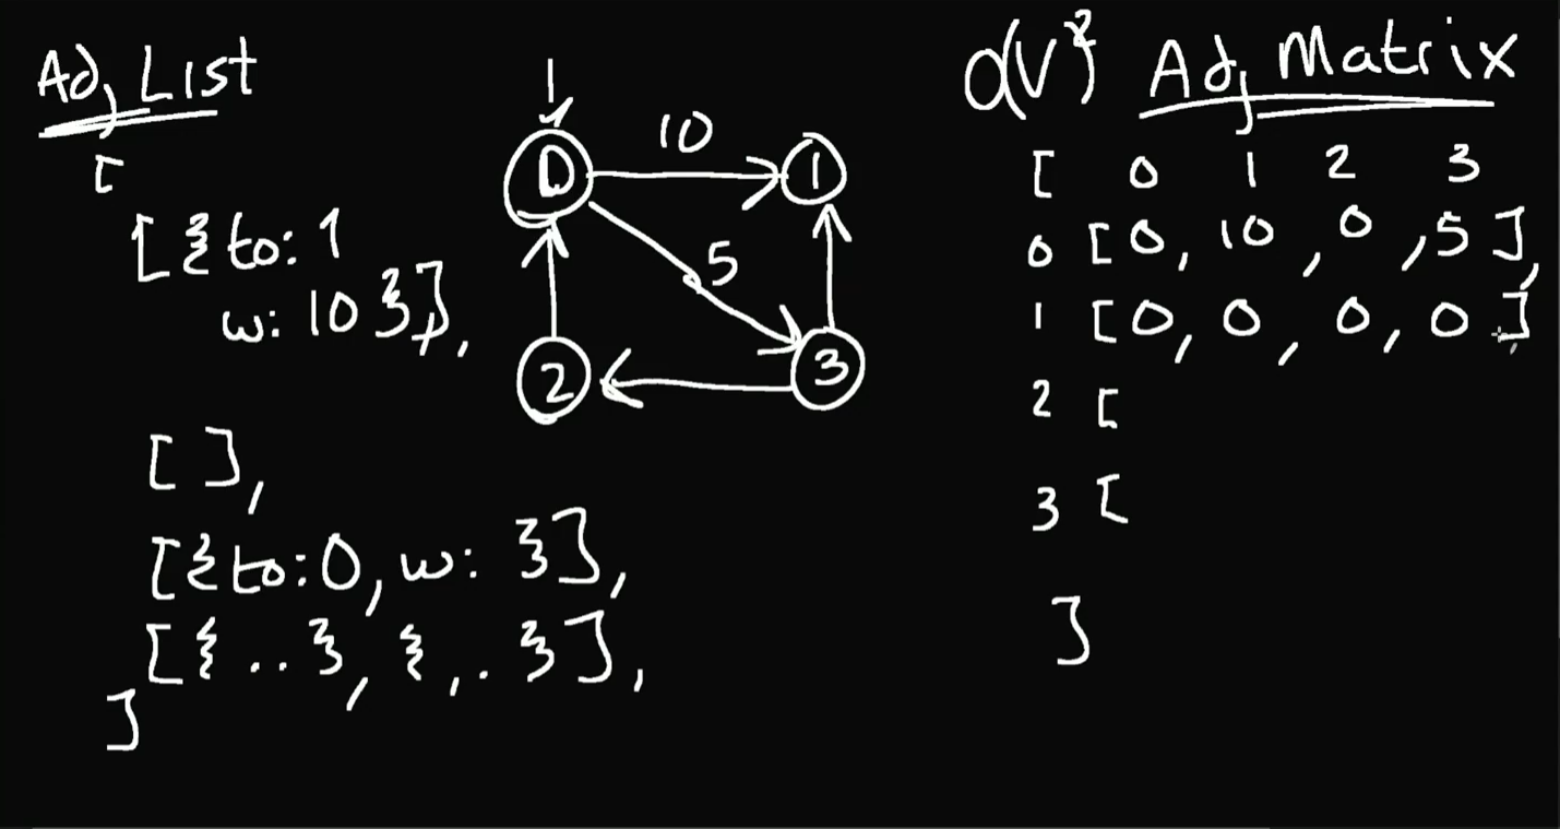 Adj List
[
[{to: 1
w: 10}],
[],
[{to:0, w: }],
[{..}, {,. }],
]
1
0
10
1
5
2
3
O(V² Adj Matrix
[ 0 1 2 3
0 [0, 10, 0, 5],
1 [0, 0, 0, 0]
2 [
3 [
]